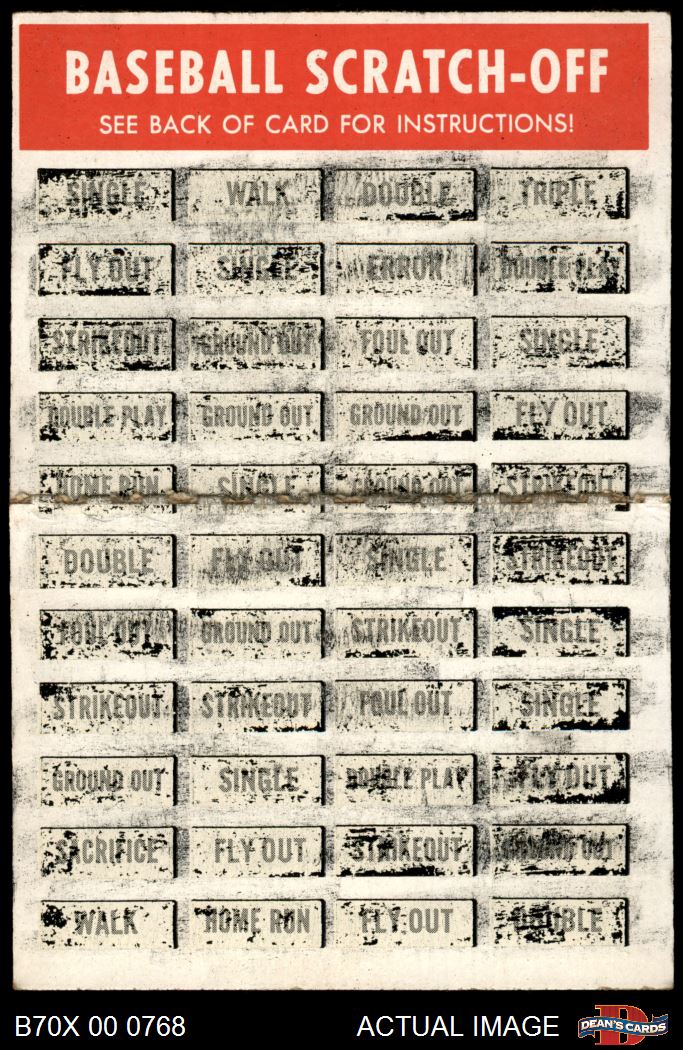 BASEBALL SCRATCH-OFF
SEE BACK OF CARD FOR INSTRUCTIONS!
SINGLE WALK DOUBLE TRIPLE
FLY OUT SINGLE ERROR DOUBLE PLAY
STRIKEOUT GROUND OUT FOUL OUT SINGLE
DOUBLE PLAY GROUND OUT GROUND OUT FLY OUT
HOME RUN SINGLE GROUND OUT STRIKEOUT
DOUBLE FLY OUT SINGLE STRIKEOUT
FOUL OUT GROUND OUT STRIKEOUT SINGLE
STRIKEOUT STRIKEOUT FOUL OUT SINGLE
GROUND OUT SINGLE DOUBLE PLAY FLY OUT
SACRIFICE FLY OUT STRIKEOUT GROUND OUT
WALK HOME RUN FLY OUT DOUBLE
B70X 00 0768 ACTUAL IMAGE D DEAN'S CARDS